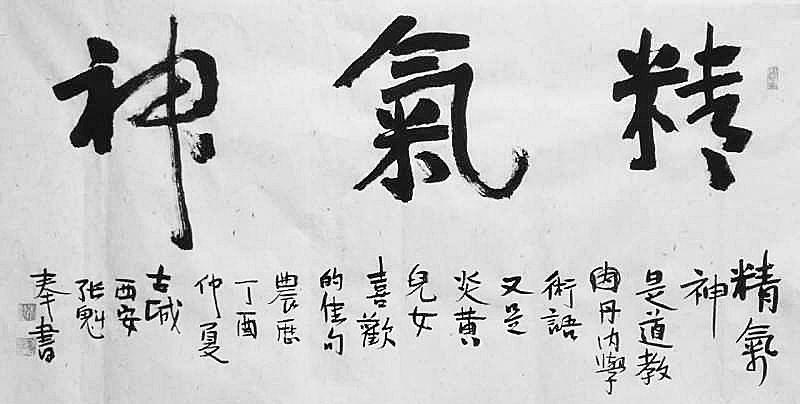 精氣神
精氣
神
是道教
内丹内學
術語
又是
炎黃
兒女
喜歡
的佳句
農历
丁酉
仲夏
古城
西安
張魁
奉書